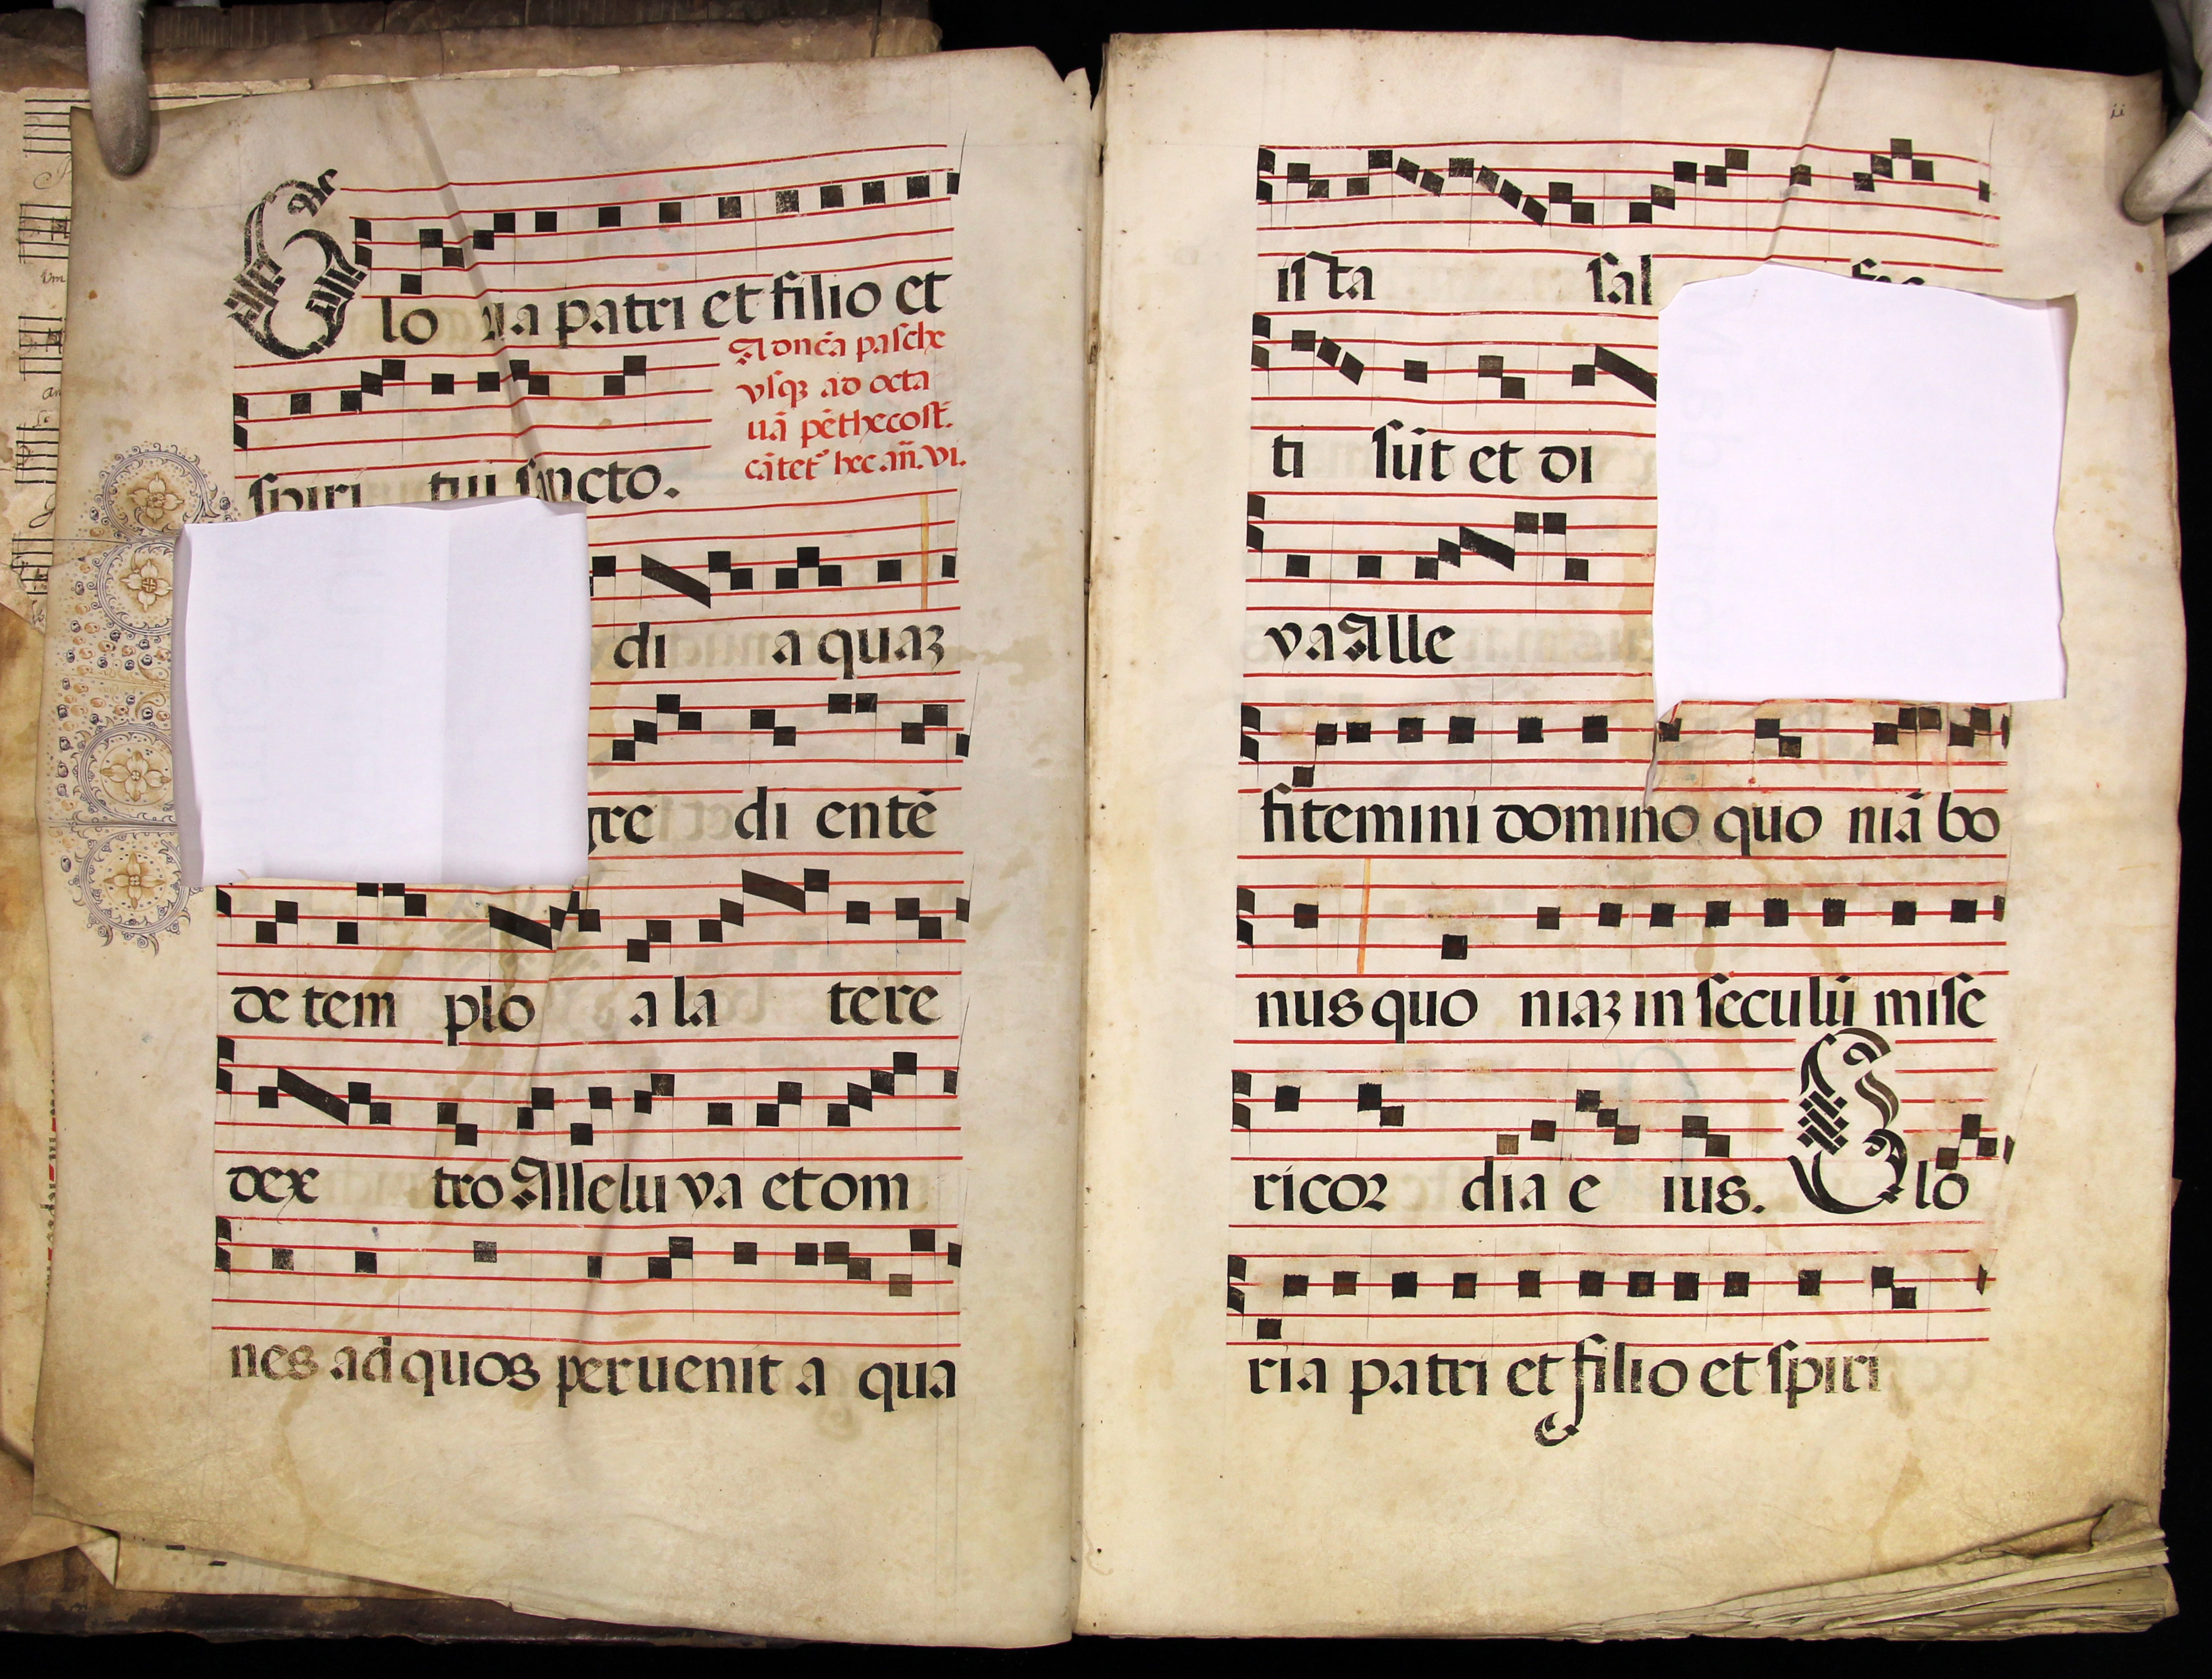 Glo ria patri et filio et
A dnīca pasche
vsqꝫ ad octa
uā pēthecost.
cātet᷑ hec añ. vi.
spiri tui sancto.
di a quaꝫ
gre di entē
de tem plo a la tere
dex tro Allelu ya et om
nes ad quos peruenit a qua
ii
ista sal
ti sūt et di
ya Alle
fitemini domino quo niā bo
nus quo niaꝫ in seculū mise
ricor dia e ius. Glo
ria patri et filio et spiri